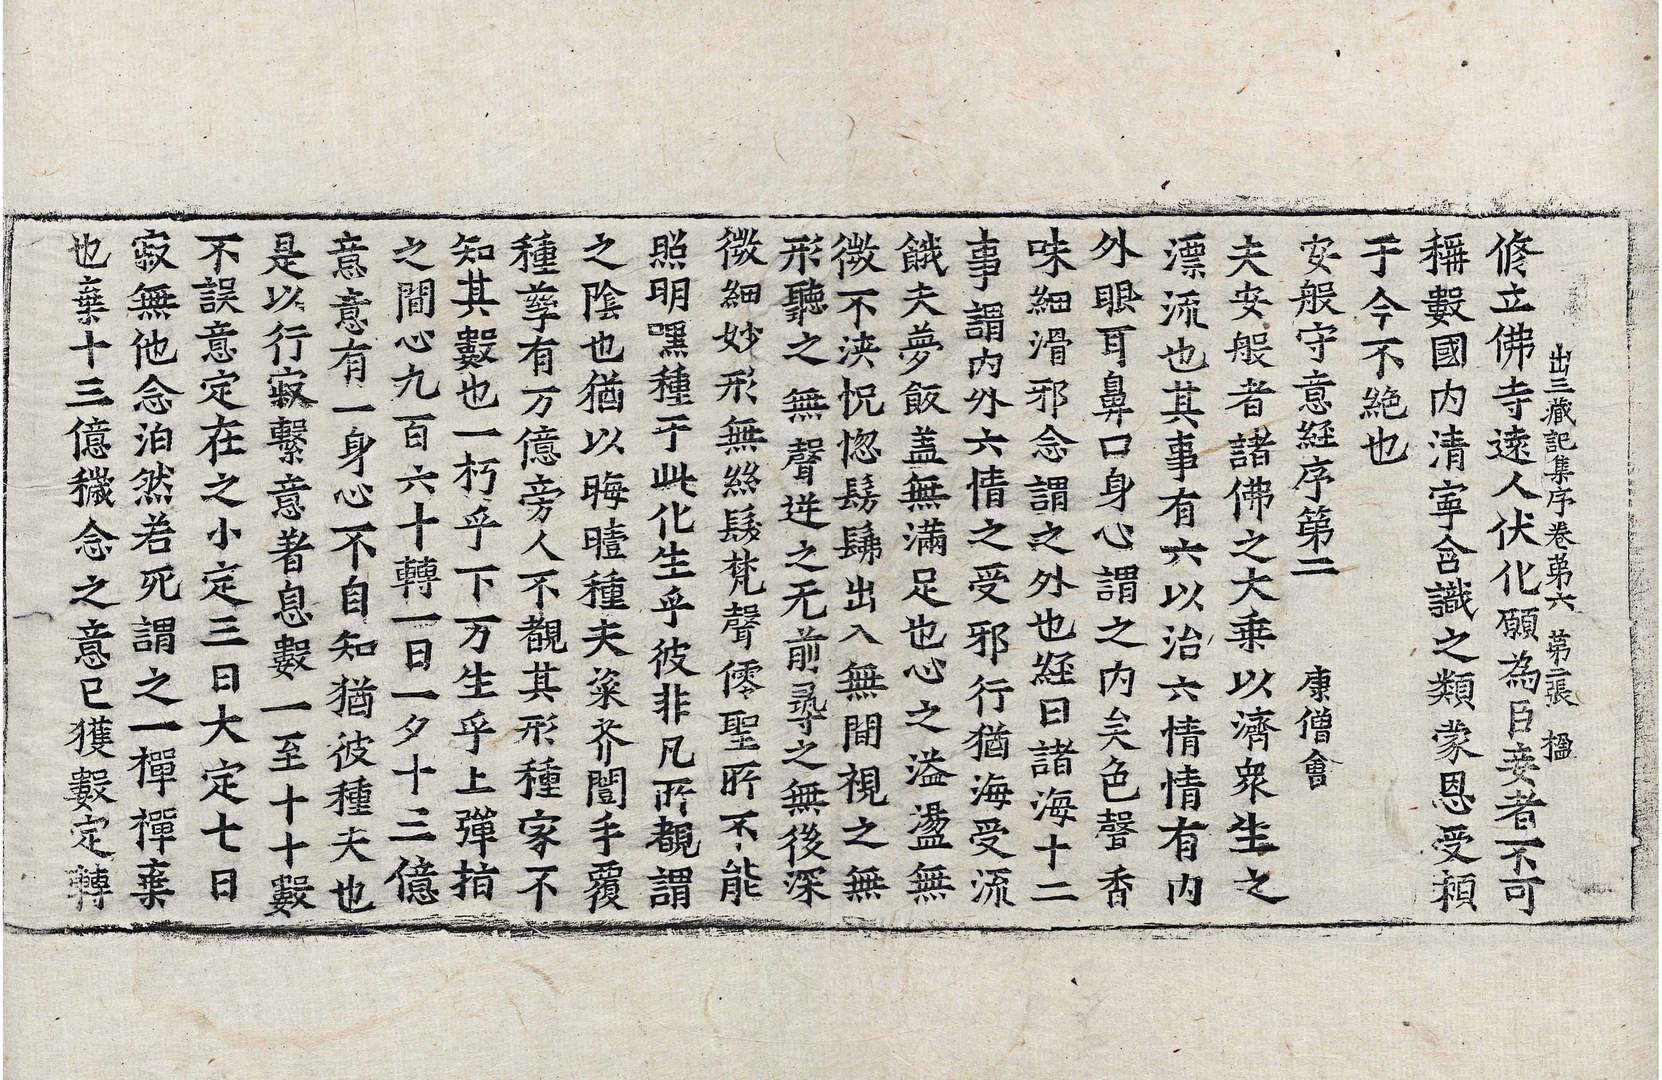 出三藏記集序卷苐六 苐二張 楹
修立佛寺遠人伏化願為臣妾者不可
稱數國内清寧含識之類蒙恩受頼
于今不絶也
安般守意經序第二 康僧會
夫安般者諸佛之大乗以濟衆生之
漂流也其事有六以治六情情有内
外眼耳鼻口身心謂之内矣色聲香
味細滑邪念謂之外也經曰諸海十二
事謂内外六情之受邪行猶海受流
餓夫夢飯盖無滿足也心之溢盪無
微不浹怳惚髣髴出入無間視之無
形聽之無聲逆之无前尋之無後深
微細妙形無絲髮梵聲僊聖所不能
照明嘿種于此化生乎彼非凡所覩謂
之陰也猶以晦曀種夫粢芥闓手覆
種孳有万億旁人不覩其形種家不
知其數也一朽乎下万生乎上彈指
之間心九百六十轉一日一夕十三億
意意有一身心不自知猶彼種夫也
是以行寂繫意著息數一至十十數
不誤意定在之小定三日大定七日
寂無他念泊然若死謂之一禪禪棄
也棄十三億穢念之意已獲數定轉